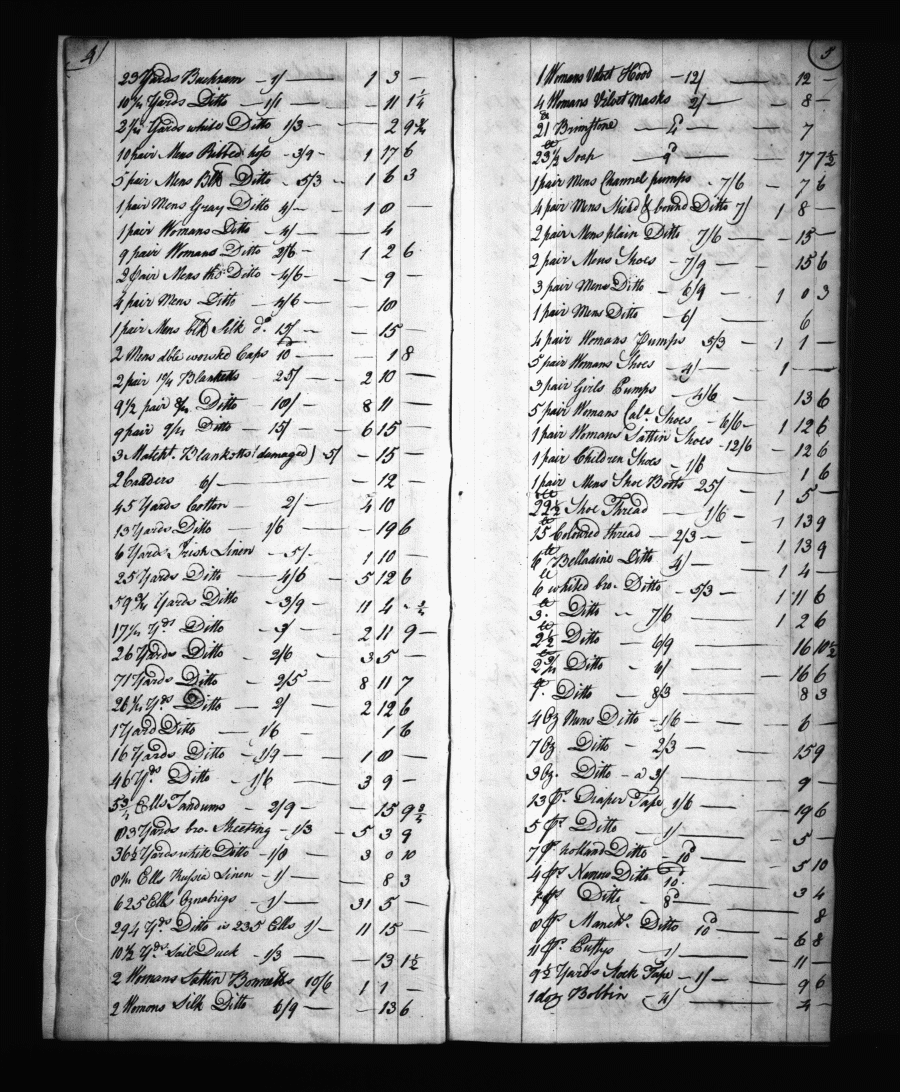 4
23 Yards Buckram - 1/ — 1 3 -
10 ¾ Yards Ditto - 1/1 — - 11 1¼
2 ¼ Yards white Ditto 1/3 — 2 9¾
10 pair Mens Ribbed hose - 3/9 - 1 17 6
5 pair Mens Blk Ditto - 5/3 - 1 6 3
1 pair Mens Gray Ditto 4/- 1 8 —
1 pair Womans Ditto - 4/ — 4
9 pair Womans Ditto 2/6 - 1 2 6
2 pair Mens thd Ditto - 4/6 - - 9 -
4 pair Mens Ditto - 4/6 - - 18
1 pair Mens blk Silk do. 15/ — - 15 -
2 Mens dble worsted Caps 10d — 1 8
2 pair 10/4 Blanketts - 25/ — 2 10 —
9 1/2 pair 8/4 Ditto - 18/ — 8 11 —
9 pair 9/4 Ditto - 15/ — 6 15 —
3 Matcht. Blanketts (damaged) 5/ - 15 —
2 6/ — - 12 -
45 Yards Cotton - 2/ — 4 10
13 Yards Ditto - 1/6 — - 19 6
6 Yards Irish Linen - 5/- 1 10 —
25 Yards Ditto — 4/6 - 5 12 6
59 ¾ Yards Ditto - 3/9 — 11 4 - ¾
17 ¼ Yds Ditto - 3/ — 2 11 9 -
26 Yards Ditto - 2/6 — 3 5 —
71 Yards Ditto - 2/5 — 8 11 7
26 ¼ Yds Ditto - 2/ — 2 12 6
1 Yard Ditto - 1/6 1 6
16 Yards Ditto - 1/9 — 1 8 —
46 Yds. Ditto - 1/6 — 3 9 -
5 ¾ Ells Tandums - 2/9 — - 15 9¾
83 Yards bro. Sheeting - 1/3 - 5 3 9
36½ Yards white Ditto - 1/8 3 0 10
8¼ Ells Russia Linen - 1/ — - 8 3
625 Ells Oznabrigs - 1/ — 31 5 -
294 Yds. Ditto is 235 Ells 1/- 11 15 —
10½ Yds Sail Duck - 1/3 — - 13 1½
2 Womans Sattin Bonnetts 10/6 1 1 -
2 Womans Silk Ditto 6/9 — - 13 6
5
1 Womans Velvet Hood - 12/ — 12 -
4 Womans Velvet Masks 2/ — - 8 -
21 Brimstone — 4d — - 7
23 ½ Soap — 9d — 17 7½
1 pair Mens Channel pumps - 7/6 - 7 6
4 pair Mens Stich'd & bound Ditto 7/ 1 8 -
2 pair Mens plain Ditto 7/6 — - 15 -
2 pair Mens Shoes - 7/9 — 15 6
3 pair Mens Ditto - 6/9 — 1 0 3
1 pair Mens Ditto - 6/ — 6
4 pair Womans Pumps 5/3 - 1 1 -
5 pair Womans Shoes - 4/ — 1 —
3 pair Girls Pumps - 4/6 — 13 6
5 pair Womans Cala. Shoes - 6/6 - 1 12 6
1 pair Womans Sattin Shoes - 12/6 — - 12 6
1 pair Children Shoes - 1/6 — 1 6
1 pair Mens Shoe Boots 25/ — 1 5 -
22 ½ Shoe Thread — 1/6 — 1 13 9
15 Coloured thread - 2/3 — 1 13 9
6 Belladine Ditto 4/ — 1 4 -
6 whited bro. Ditto - 5/3 — 1 11 6
3 Ditto - 7/6 — 1 2 6
2½ Ditto - 6/9 — 16 10½
Ditto - 6/ — 16 6
1 Ditto - 8/3 — 8 3
4 Oz Nuns Ditto - 1/6 — - 6 -
7 Oz Ditto - 2/3 — 15 9
3 Oz. Ditto - a 3/ — - 9 -
13 ps. Draper Tape 1/6 — 19 6
5 ps Ditto - 1/ — - 5 -
7 ps Holland Ditto 10d — 5 10
4 ps Ditto 10d — 3 4
ps Ditto - 8d — 8
8 ps. Manchr. Ditto 10d — - 6 8
11 ps. - 1/ — - 11 -
9½ Yards Stock Tape - 1/ — 9 6
1 doz Bobbin - 4/ — 4 -